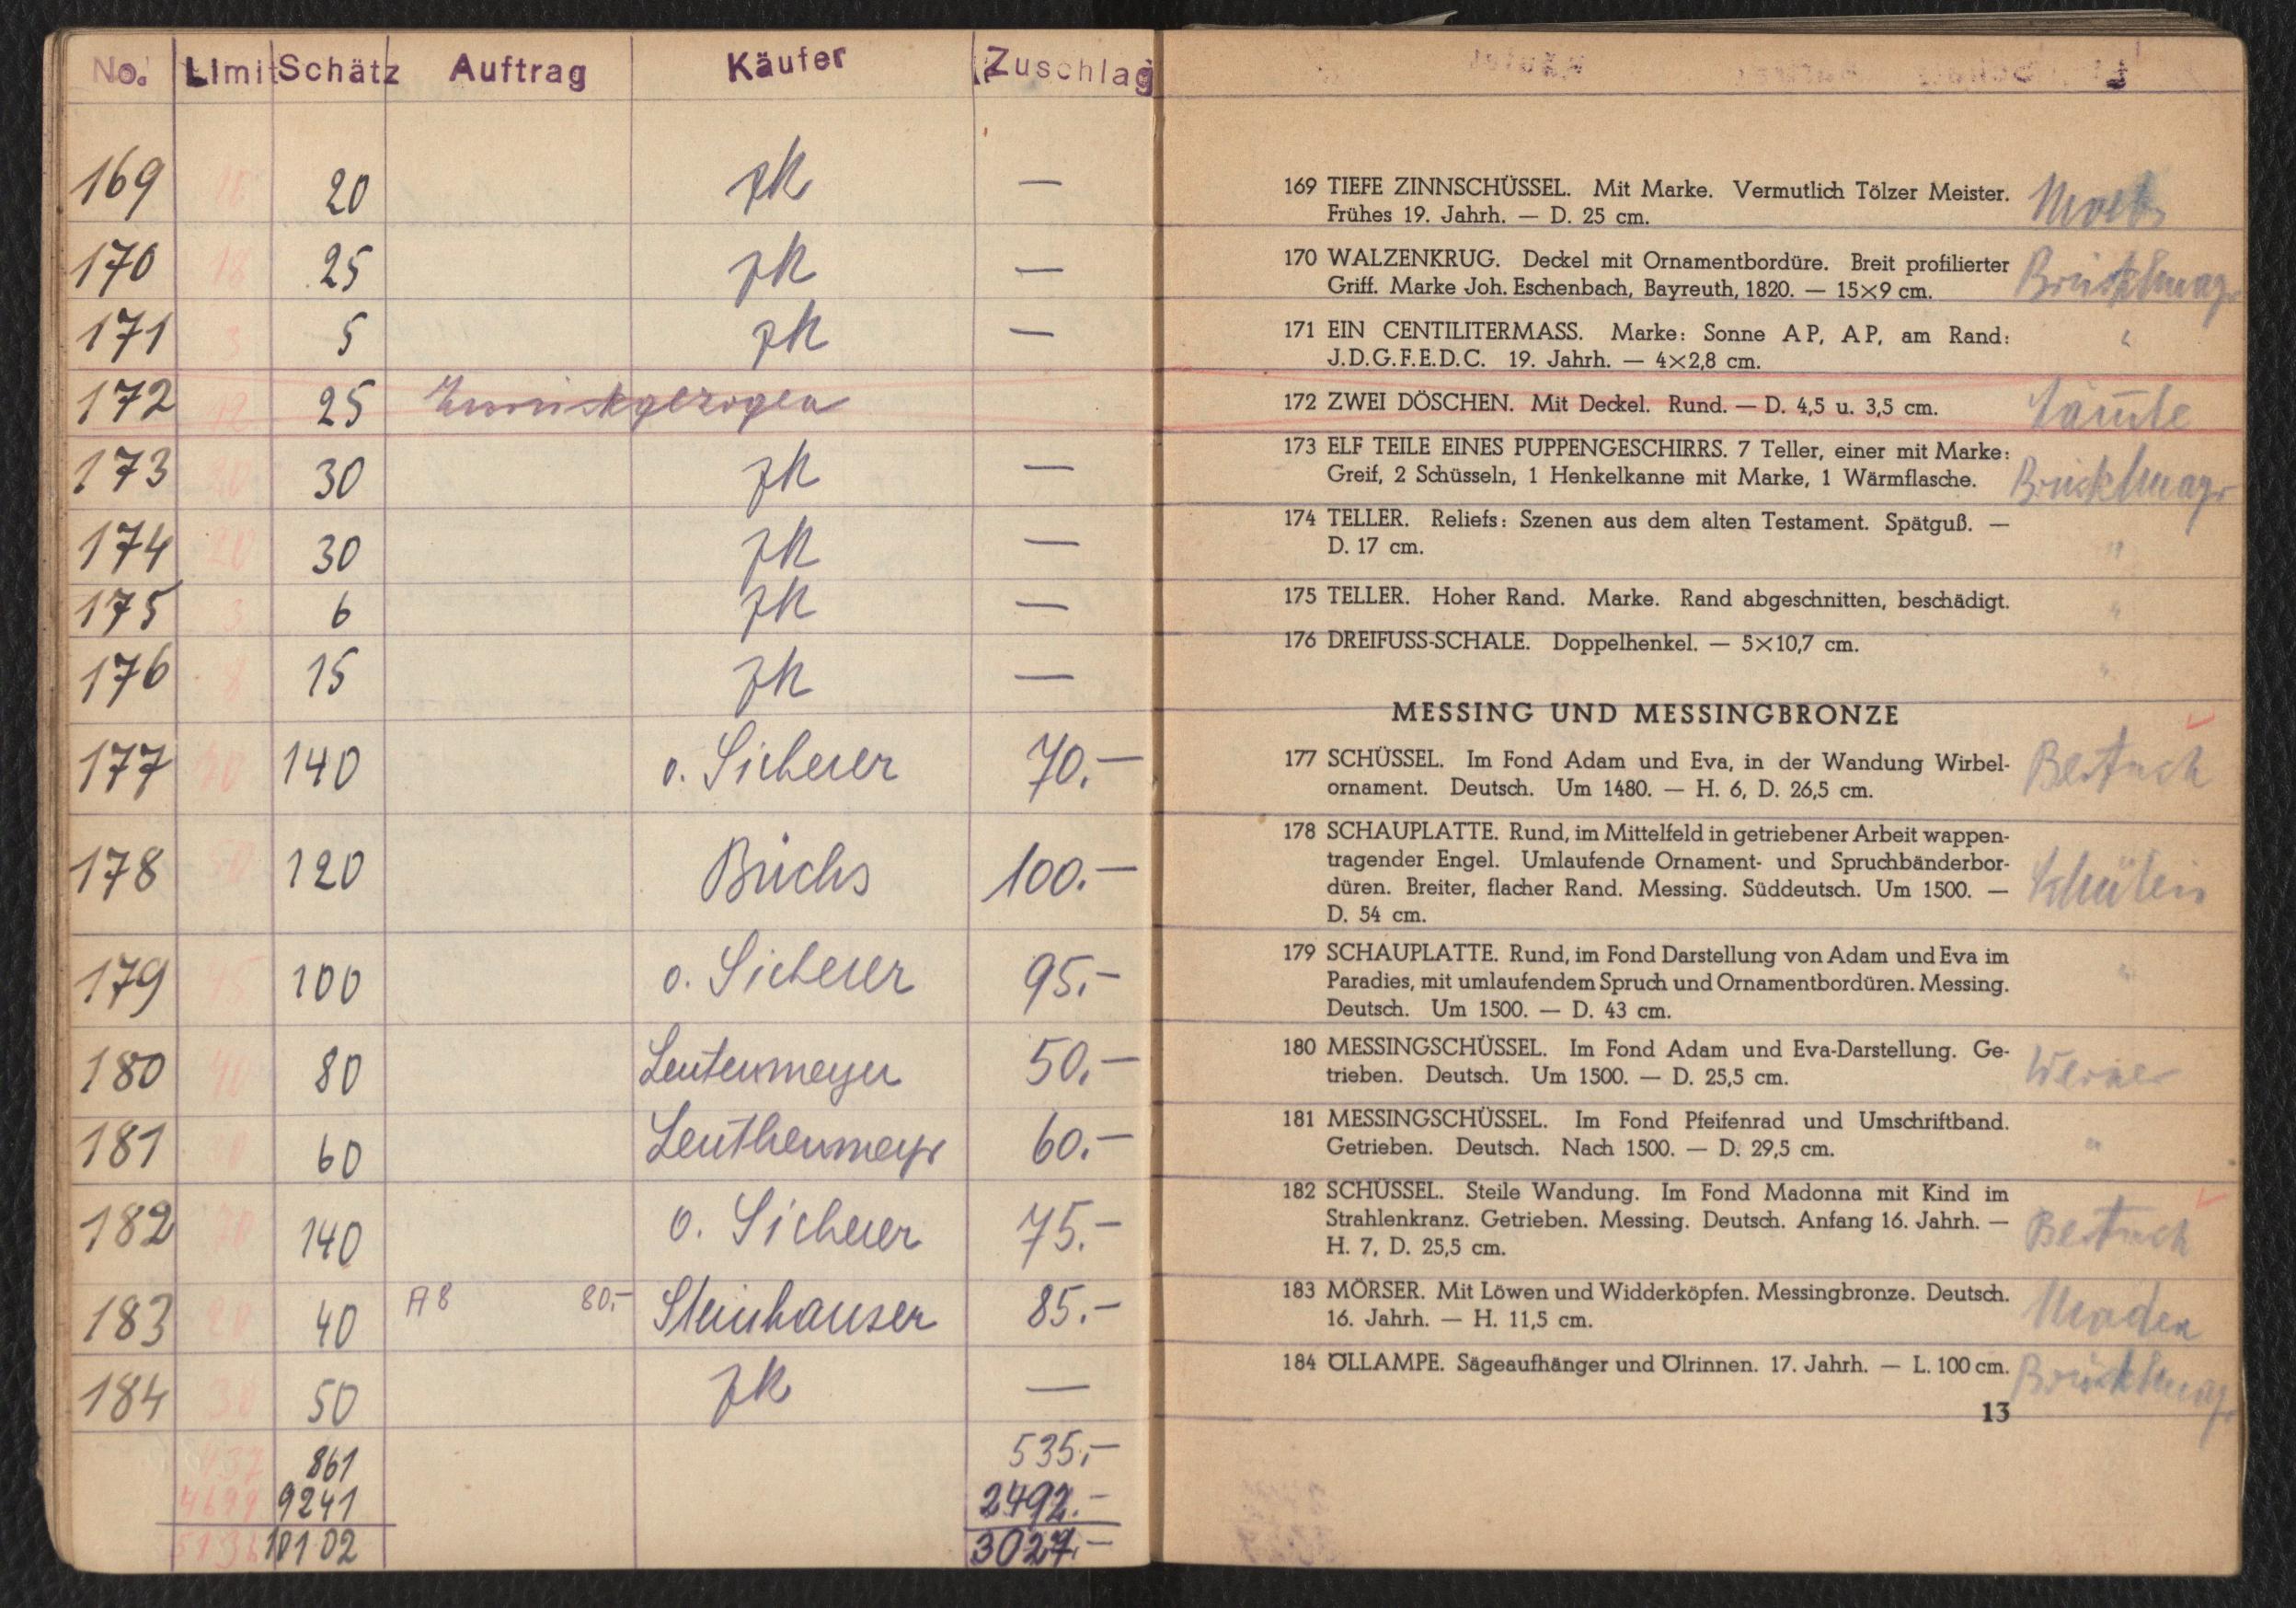 No. Limit Schätz Auftrag Käufer Zuschlag
169 20 zk —
170 18 25 zk —
171 3 5 zk —
172 12 25 Zurückgezogen
173 20 30 zk —
174 20 30 zk —
175 3 6 zk —
176 8 15 zk —
177 70 140 v. Sicherer 70.—
178 50 120 Büchs 100.—
179 100 v. Sicherer 95.—
180 40 80 Leutenmeyer 50.—
181 60 Leuthenmeyr 60.—
182 70 140 v. Sicherer 75.—
183 20 40 A8 80.- Steinhauser 85.—
184 30 50 zk —
437 861 535.—
4699 9241 2492.—
5136 10102 3027.—
169 TIEFE ZINNSCHÜSSEL. Mit Marke. Vermutlich Tölzer Meister.
Frühes 19. Jahrh. — D. 25 cm.
170 WALZENKRUG. Deckel mit Ornamentbordüre. Breit profilierter
Griff. Marke Joh. Eschenbach, Bayreuth, 1820. — 15×9 cm.
Brücklmayr
171 EIN CENTILITERMASS. Marke: Sonne AP, AP, am Rand: "
J.D.G.F.E.D.C. 19. Jahrh. — 4×2,8 cm.
172 ZWEI DÖSCHEN. Mit Deckel. Rund. — D. 4,5 u. 3,5 cm.
173 ELF TEILE EINES PUPPENGESCHIRRS. 7 Teller, einer mit Marke:
Greif, 2 Schüsseln, 1 Henkelkanne mit Marke, 1 Wärmflasche. Brücklmayr
174 TELLER. Reliefs: Szenen aus dem alten Testament. Spätguß. —
D. 17 cm. "
175 TELLER. Hoher Rand. Marke. Rand abgeschnitten, beschädigt. "
176 DREIFUSS-SCHALE. Doppelhenkel. — 5×10,7 cm. "
MESSING UND MESSINGBRONZE
177 SCHÜSSEL. Im Fond Adam und Eva, in der Wandung Wirbel-
ornament. Deutsch. Um 1480. — H. 6, D. 26,5 cm.
178 SCHAUPLATTE. Rund, im Mittelfeld in getriebener Arbeit wappen-
tragender Engel. Umlaufende Ornament- und Spruchbänderbor-
düren. Breiter, flacher Rand. Messing. Süddeutsch. Um 1500. —
D. 54 cm.
179 SCHAUPLATTE. Rund, im Fond Darstellung von Adam und Eva im
Paradies, mit umlaufendem Spruch und Ornamentbordüren. Messing. "
Deutsch. Um 1500. — D. 43 cm.
180 MESSINGSCHÜSSEL. Im Fond Adam und Eva-Darstellung. Ge-
trieben. Deutsch. Um 1500. — D. 25,5 cm. Werner
181 MESSINGSCHÜSSEL. Im Fond Pfeifenrad und Umschriftband.
Getrieben. Deutsch. Nach 1500. — D. 29,5 cm. "
182 SCHÜSSEL. Steile Wandung. Im Fond Madonna mit Kind im
Strahlenkranz. Getrieben. Messing. Deutsch. Anfang 16. Jahrh. —
H. 7, D. 25,5 cm.
183 MÖRSER. Mit Löwen und Widderköpfen. Messingbronze. Deutsch.
16. Jahrh. — H. 11,5 cm.
184 ÖLLAMPE. Sägeaufhänger und Ölrinnen. 17. Jahrh. — L. 100 cm. Brücklmayr
13